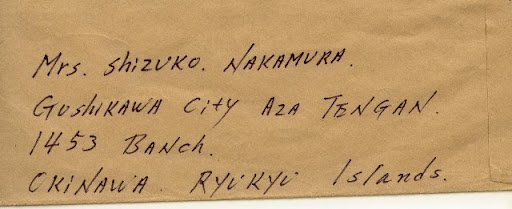 Mrs. Shizuko. NAKAMURA.
GUSHIKAWA City AZA TENGAN.
1453 BANCH.
OKINAWA. RYUKYU Islands.